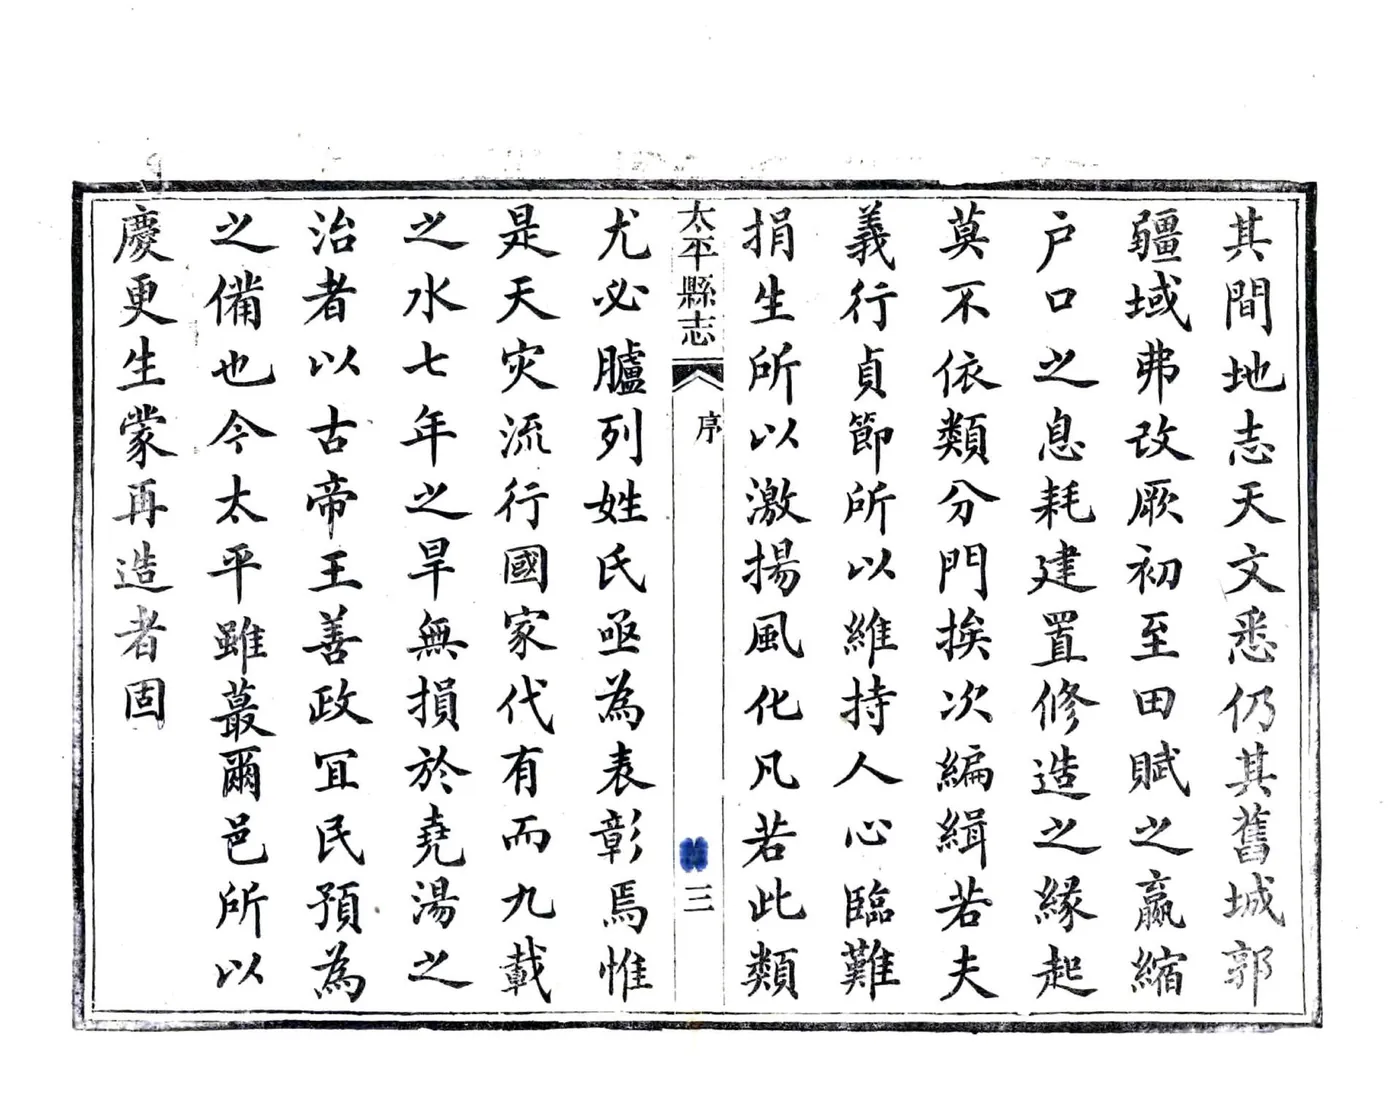 其間地志天文悉仍其舊城郭
疆域弗改厥初至田賦之贏縮
户口之息耗建置修造之緣起
莫不依類分門挨次編緝若夫
義行貞節所以維持人心臨難
捐生所以激揚風化凡若此類
太平縣志
序
三
尤必臚列姓氏亟為表彰焉惟
是天灾流行國家代有而九載
之水七年之旱無損於堯湯之
治者以古帝王善政冝民預為
之備也今太平雖蕞爾邑所以
慶更生蒙再造者固